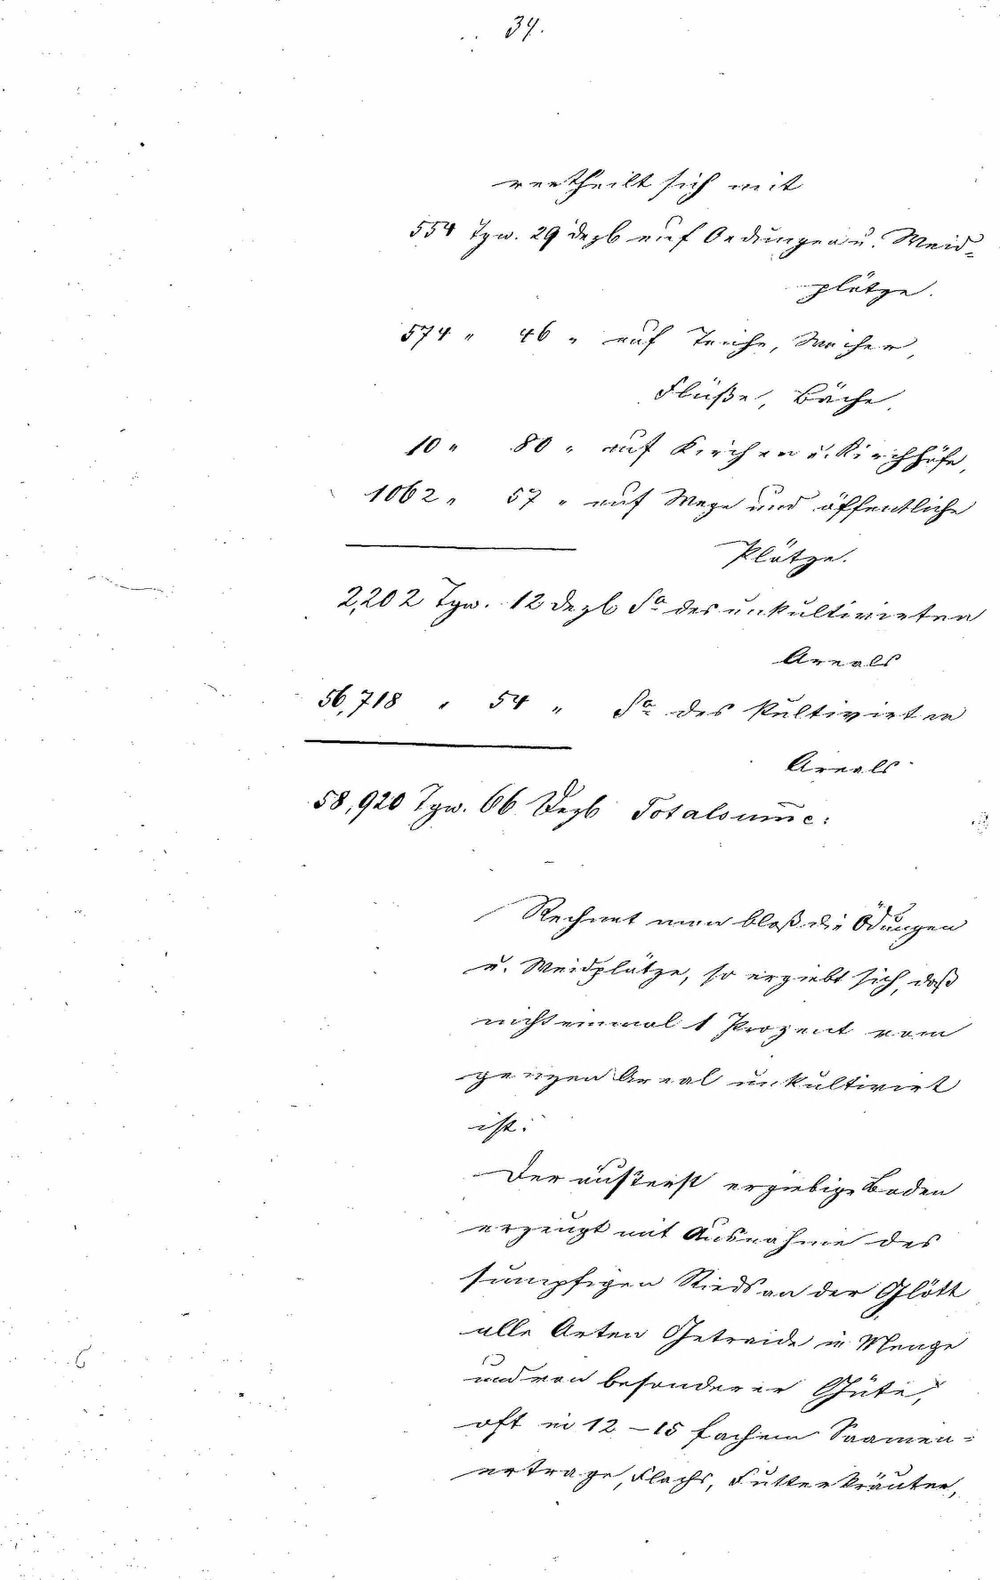 34.
vertheilt sich mit
554 Tgw. 29 dezb auf Oedungen u. Weid-
plätze.
574 " 46 " auf Teiche, Weiher,
Flüße, Bäche,
10 " 80 " auf Kirchen u. Kirchhöfe,
1062 " 57 " auf Wege und öffentliche
Plätze.
2,202 Tgw. 12 dezb Sa des unkultivirten
Areals
56,718 " 54 " Sa des kultivirten
Areals
58,920 Tgw. 66 Dezb Totalsum̅e:
Rechnet man bloß die Ödungen
u. Weidplätze, so ergiebt sich, daß
nicht einmal 1 Prozent vom
ganzen Areal unkultivirt
ist.
Der äußerst ergiebige Boden
erzeugt mit Ausnahme des
sumpfigen Rieds an der Glött
alle Arten Getraide in Menge
und von besonderer Güte,
oft in 12 – 15 fachem Saamen-
ertrage, Flachs, Futterkräuter,